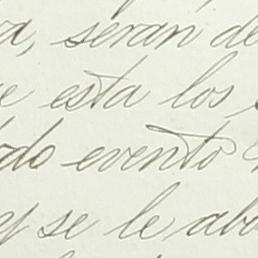 serán de
esta los
do evento
y se le abo